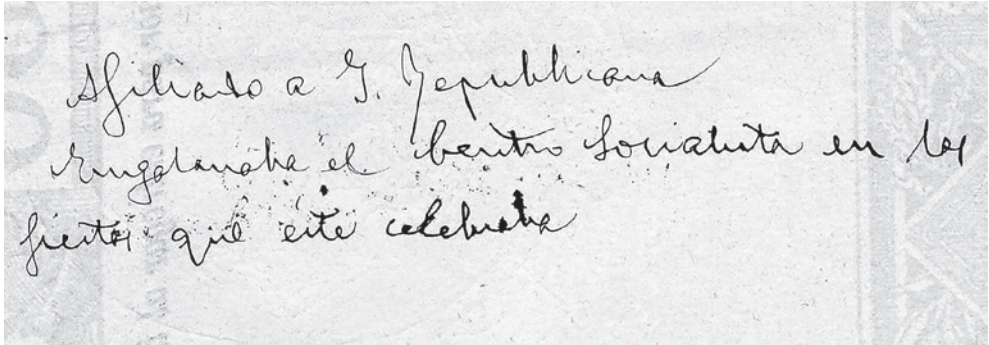 Afiliado a I. Republicana
Engalanaba el Centro Socialista en las
fiestas que este celebraba